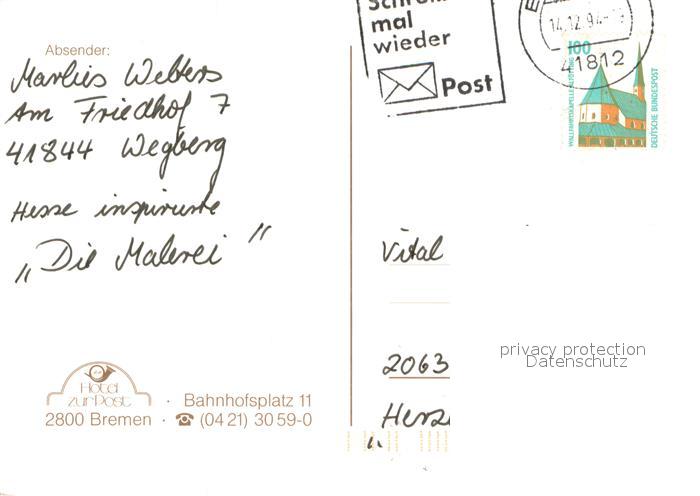 Absender:
Marlies Welters
Am Friedhof 7
41844 Wegberg
Hesse inspirierte
„Die Malerei"
Hotel
zur Post
· Bahnhofsplatz 11
2800 Bremen · ☎ (04 21) 30 59-0
mal
wieder
Post
14.12.94
41812
100
WALLFAHRTSKAPELLE ALTÖTTING
DEUTSCHE BUNDESPOST
Vital
privacy protection
Datenschutz
2063